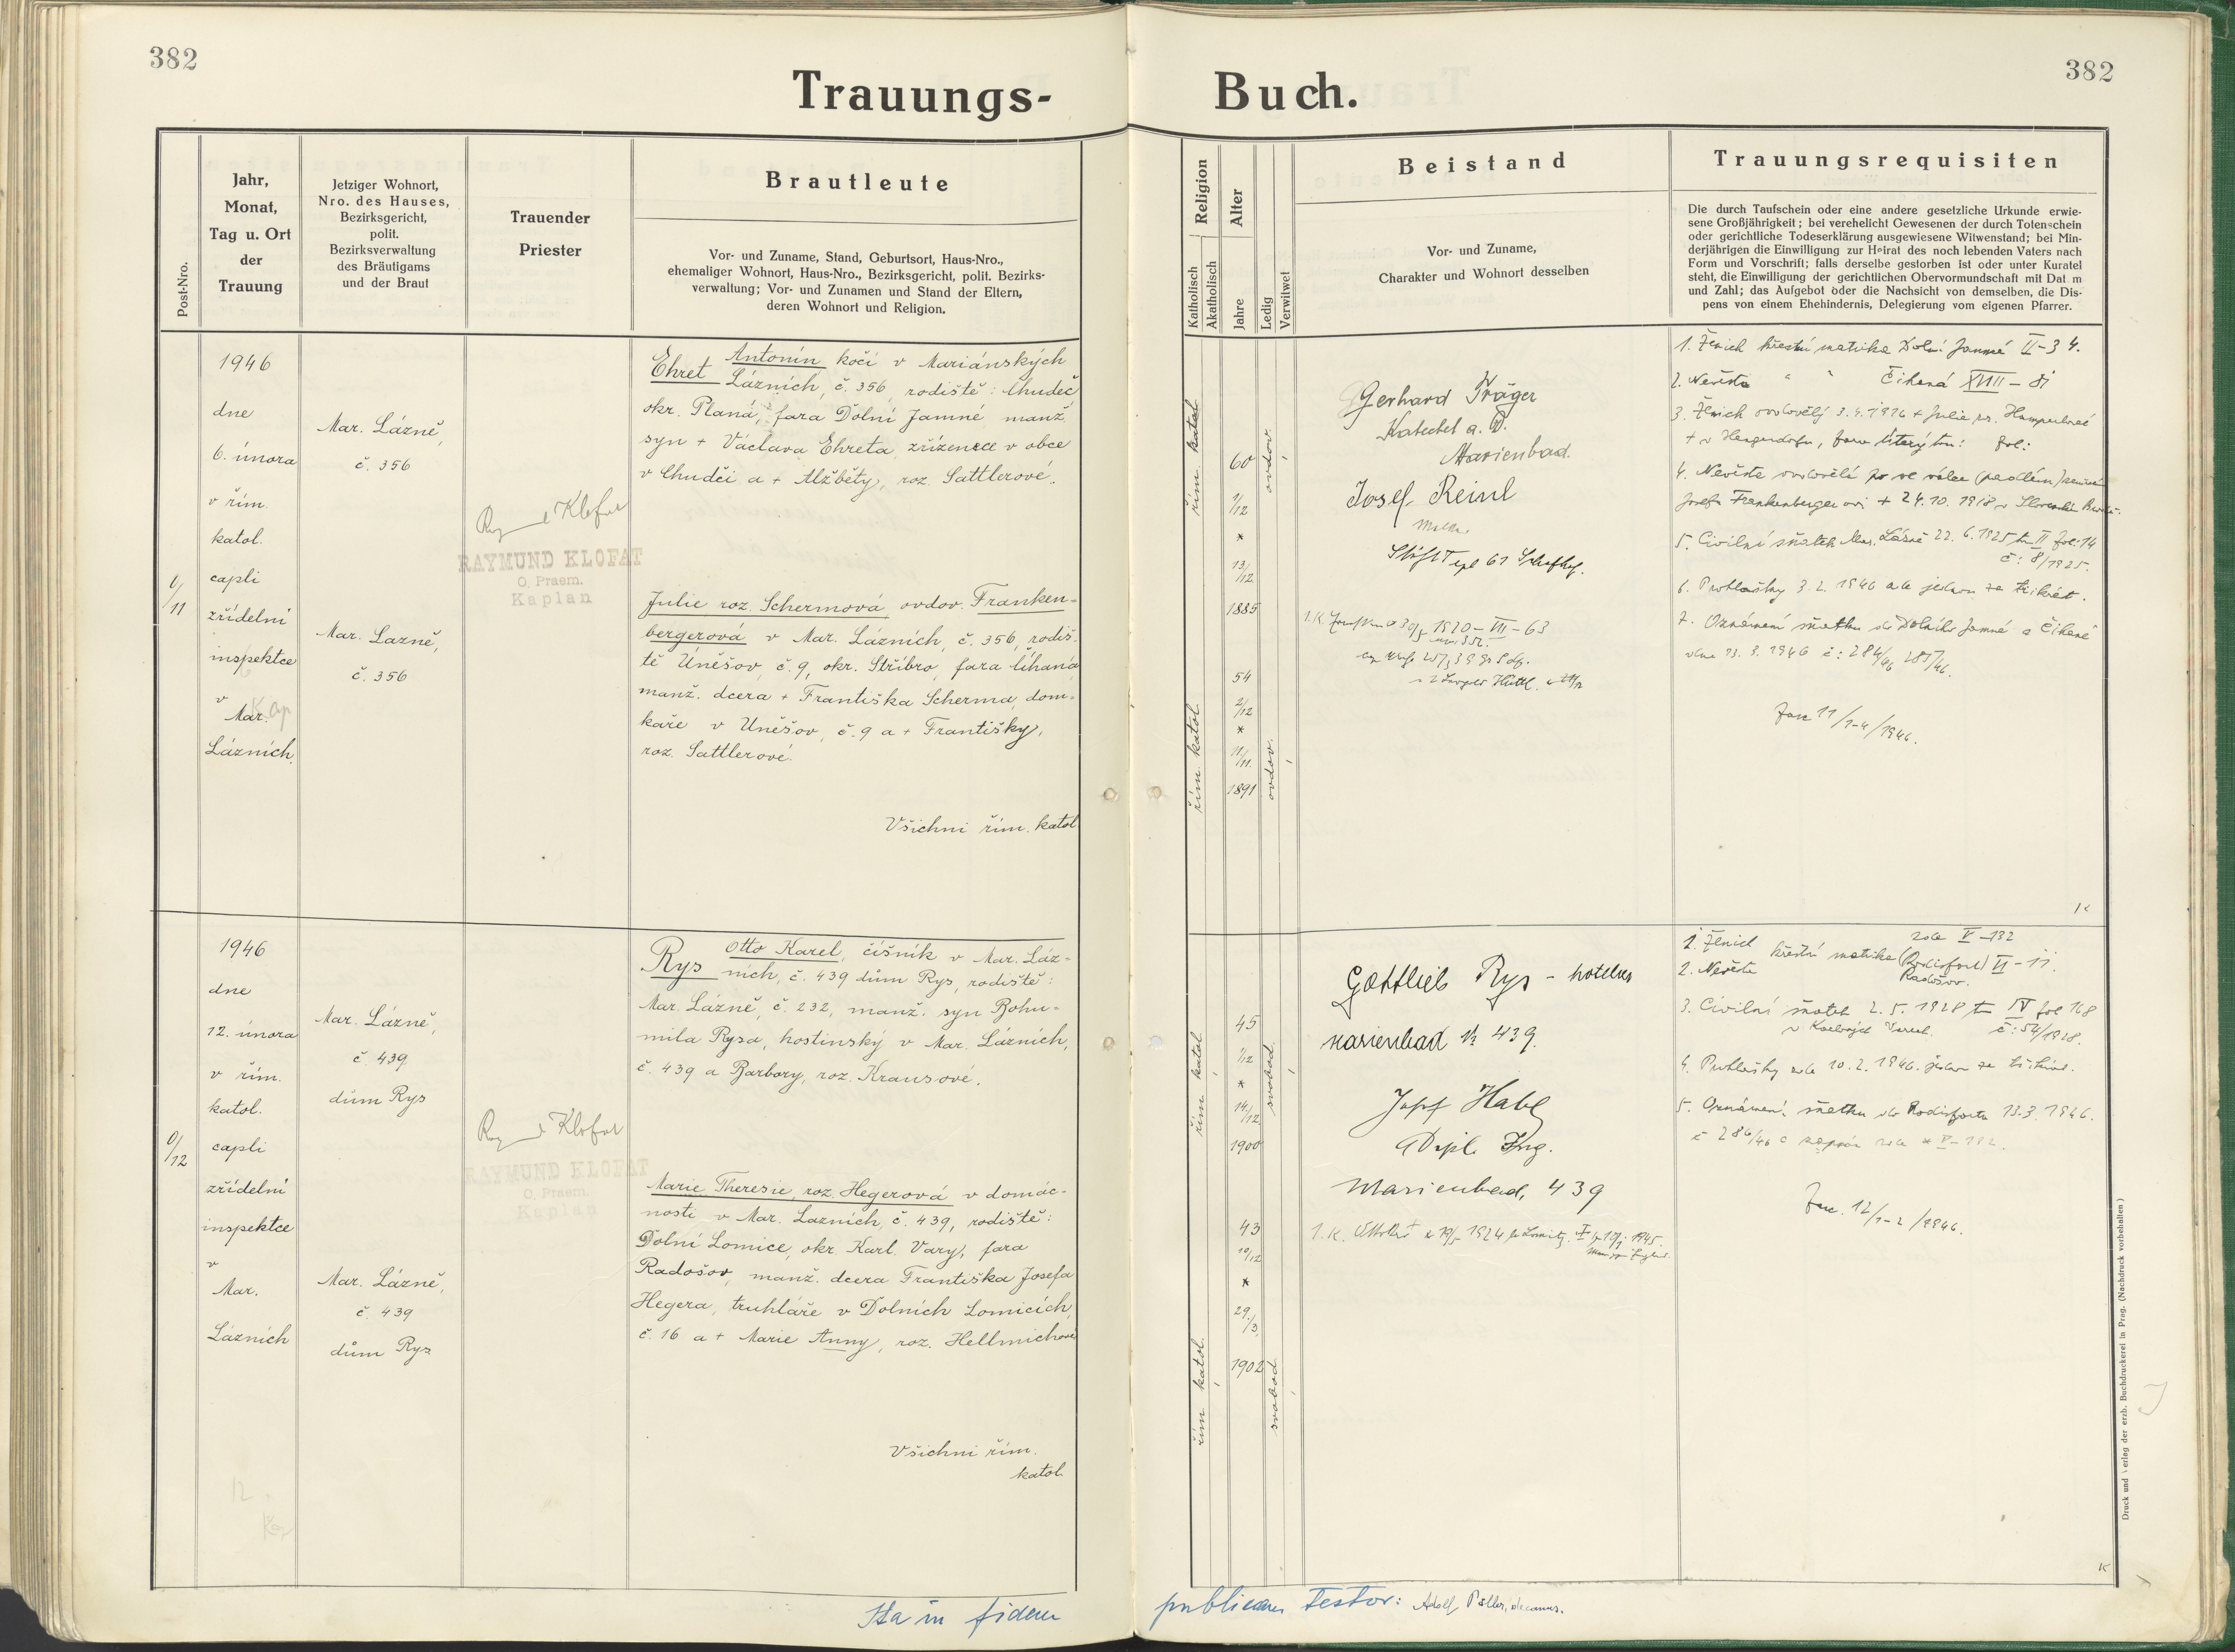 382
382
Trauungs-
Buch.
Post-Nro.
Jahr,
Monat,
Tag u. Ort
der
Trauung
Jetziger Wohnort,
Nro. des Hauses,
Bezirksgericht,
polit.
Bezirksverwaltung
des Bräutigams
und der Braut
Trauender
Priester
Brautleute
Vor- und Zuname, Stand, Geburtsort, Haus-Nro.,
ehemaliger Wohnort, Haus-Nro., Bezirksgericht, polit. Bezirks-
verwaltung; Vor- und Zunamen und Stand der Eltern,
deren Wohnort und Religion.
Religion
Katholisch
Akatholisch
Alter
Jahre
Ledig
Verwitwet
Beistand
Vor- und Zuname,
Charakter und Wohnort desselben
Trauungsrequisiten
Die durch Taufschein oder eine andere gesetzliche Urkunde erwie-
sene Großjährigkeit; bei verehelicht Gewesenen der durch Totenschein
oder gerichtliche Todeserklärung ausgewiesene Witwenstand; bei Min-
derjährigen die Einwilligung zur Heirat des noch lebenden Vaters nach
Form und Vorschrift; falls derselbe gestorben ist oder unter Kuratel
steht, die Einwilligung der gerichtlichen Obervormundschaft mit Dat m
und Zahl; das Aufgebot oder die Nachsicht von demselben, die Dis-
pens von einem Ehehindernis, Delegierung vom eigenen Pfarrer.
1/11
1946
dne
6. února
v řím.
katol.
capli
zřídelní
inspektce
v
Mar.
Lázních.
Mar. Lázně,
č. 356
Mar. Lazně,
č. 356
Klofat
RAYMUND KLOFAT
O. Praem.
Kaplan
Ehret Antonín kočí v Mariánských
Lázních, č. 356, rodiště: Chudeč
okr. Planá, fara Dolní Jamné, manž.
syn + Václava Ehreta, zřízence v obce
v Chudči a + Alžběty, roz. Sattlerové.
Julie roz. Schermová ovdov. Franken-
bergerová v Mar. Lázních, č. 356, rodiš-
tě Úněšov, č. 9, okr. Stříbro, fara Číhaná
manž. dcera + Františka Scherma, dom-
kaře v Uněšov, č. 9 a + Františky,
roz. Sattlerové.
Všichni řím. katol.
řím. katol.
60
1/12
*
13/12
1885
ovdov.
řím. katol.
54
2/12
*
11/11
1891
ovdov.
Gerhard Träger
Katechet a. D.
Marienbad.
Josef Reinl
Stift Tepl 61
1920-VII-63
1. Ženich křestní matrika Dolní Jamné II-34.
2. Nevěsta " " Číhaná XVIII-81
3. Ženich ovdovělý
4. Nevěsta ovdovělá po ve válce
Josefa Frankenbergerovi + 24.10.1918 v
5. Civilní sňatek Mar. Lázně 22.6.1925 t II fol: 14
č: 8/1925.
6. Prohlášky 3.2.1946 ale jednou za třikrát.
7. Oznámení sňatku do Dolního Jamné a Číhané
dne 13.3.1946 č: 284/46 285/46.
Fasc 11/1-4/1946.
0/12
1946
dne
12. února
v řím.
katol.
capli
zřídelní
inspektce
v
Mar.
Lázních
Mar. Lázně,
č. 439
dům Rys
Mar. Lázně,
č. 439
dům Rys
Klofat
RAYMUND KLOFAT
O. Praem.
Kaplan
Rys Otto Karel, číšník v Mar. Láz-
ních, č. 439 dům Rys, rodiště:
Mar. Lázně, č. 232, manž. syn Bohu-
mila Rysa, hostinský v Mar. Lázních,
č. 439 a Barbory, roz. Krausové.
Marie Theresie, roz. Hegerová v domác-
nosti v Mar. Lazních, č. 439, rodiště:
Dolní Lomice, okr. Karl. Vary, fara
Radošov, manž. dcera Františka Josefa
Hegera, truhláře v Dolních Lomicích
č. 16 a + Marie Anny, roz. Hellmichové
Všichni řím.
katol.
řím. katol.
45
1/12
*
14/12
1900
svobod.
řím. katol.
43
10/12
*
29./3.
1902
svobod.
Gottlieb Rys - hotelier
Marienbad № 439.
Josef Habl
Dipl. Ing.
Marienbad, 439
1. Ženich zde V-132
2. Nevěsta křestní matrika (Rodisfort) VI-11.
Radošov.
3. Civilní sňatek 2.5.1928 t IV fol 168
v Karlových Varech. č: 54/1928.
4. Prohlášky zde 10.2.1946. jednou za třikrát.
5. Oznámení sňatku do Rodisfortu 13.3.1946.
č 286/46
Fasc. 12/1-2/1946.
Ita in fidem
publicam testor: Adolf Poller, decanus.
Druck und Verlag der erzb. Buchdruckerei in Prag. (Nachdruck vorbehalten)